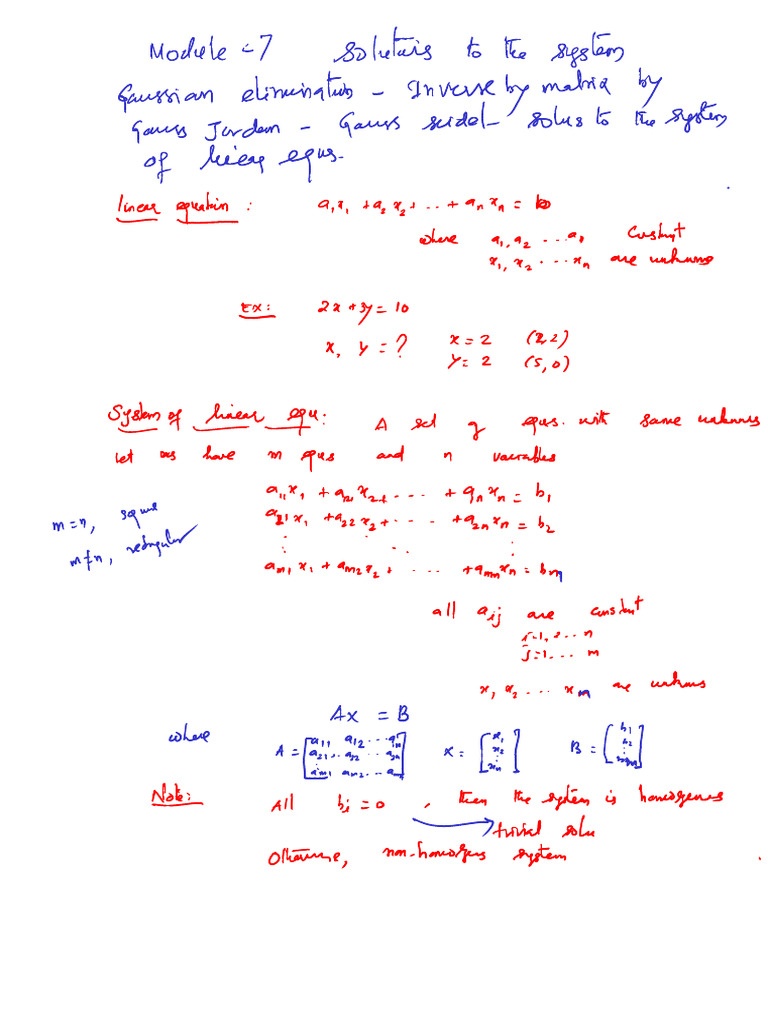 Module-7 Solutions to the system
Gaussian elimination - Inverse by matrix by
Gauss Jordan - Gauss seidel - solus to the system
of linear equs.
linear equation : a₁x₁ + a₂x₂ + .. + aₙxₙ = b
where a₁, a₂ ... aₙ constant
x₁, x₂ ... xₙ are unknowns
Ex: 2x + 3y = 10
x, y = ? x = 2 (2, 2)
y = 2 (5, 0)
System of linear equ: A set of equs. with same unknowns
Let us have m equs and n variables
a₁₁x₁ + a₁₂x₂ + ... + a₁ₙxₙ = b₁
m=n, square
a₂₁x₁ + a₂₂x₂ + ... + a₂ₙxₙ = b₂
m≠n, rectangular
: : :
aₘ₁x₁ + aₘ₂x₂ + ... + aₘₙxₙ = bₘ
all aᵢⱼ are constant
i=1, ... n
j=1 ... m
x₁ x₂ ... xₘ are unknowns
Ax = B
where A = [a₁₁ a₁₂ ... a₁ₙ X = [x₁ B = [b₁
a₂₁ .. a₂₂ ... a₂ₙ x₂ b₂
: : :
aₘ₁ aₘ₂ ... aₘₙ] xₙ] bₘ]
Note: All bᵢ = 0, then the system is homogenus
→ trivial solu
Otherwise, non-homogenus system